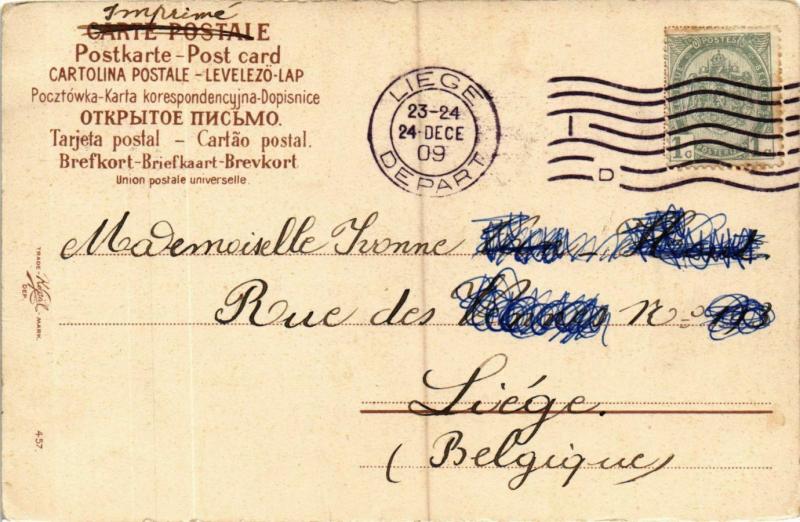 Imprimé
CARTE POSTALE
Postkarte - Post card
CARTOLINA POSTALE - LEVELEZÖ-LAP
Pocztówka - Karta korespondencyjna - Dopisnice
ОТКРЫТОЕ ПИСЬМО.
Tarjeta postal - Cartão postal.
Brefkort - Briefkaart - Brevkort
Union postale universelle.
LIEGE
23-24
24 DECE
09
DEPART
I
D
POSTES
1c 1c
Mademoiselle Yvonne
Rue des Nº
Liége.
(Belgique)
TRADE MARK.
DEP.
457.